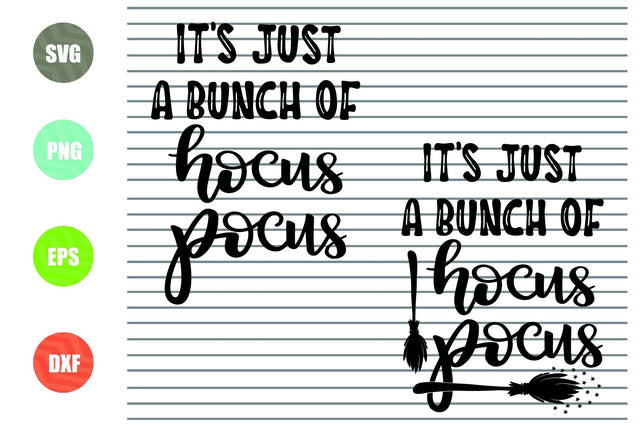 SVG
PNG
EPS
DXF
IT'S JUST
A BUNCH OF
hocus
pocus
IT'S JUST
A BUNCH OF
hocus
pocus